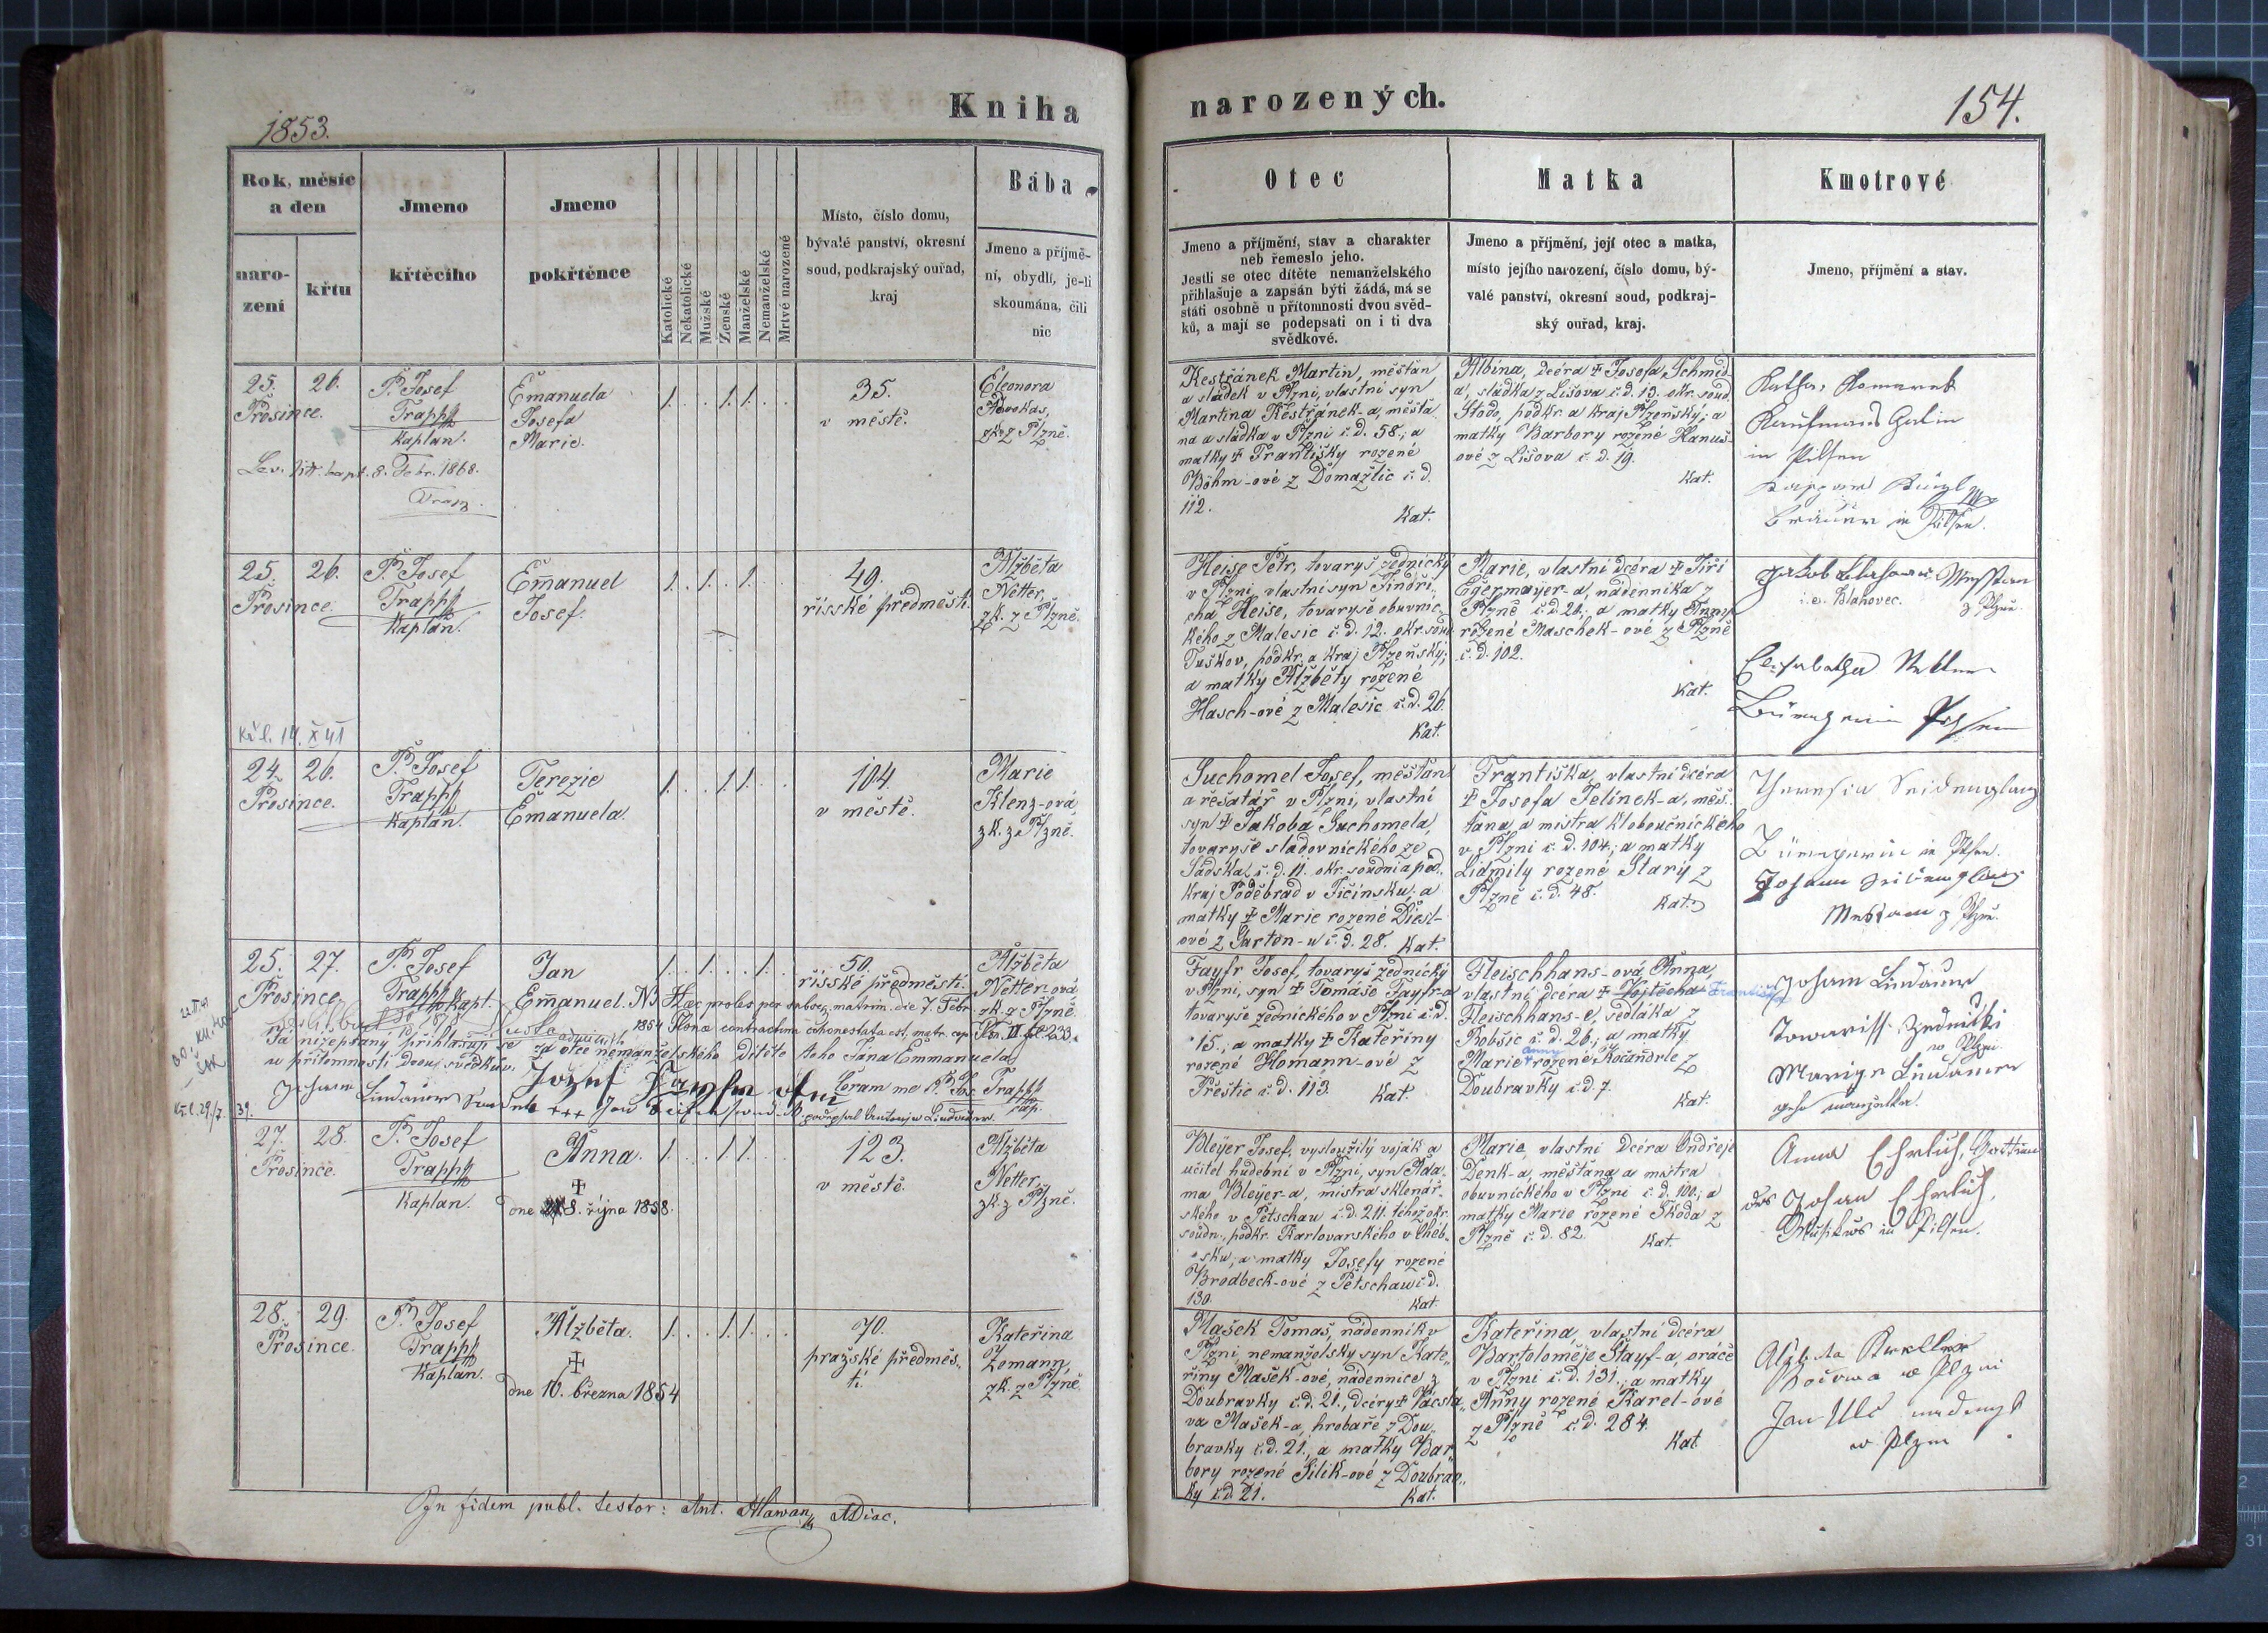 1853.
Kniha
narozených.
154.
Rok, měsíc
a den
naro-
zení
křtu
Jmeno
křtěcího
Jmeno
pokřtěnce
Katolické
Nekatolické
Mužské
Zenské
Manželské
Nemanželské
Mrtvé narozené
Místo, číslo domu,
bývalé panství, okresní
soud, podkrajský ouřad,
kraj
Bába
Jmeno a příjmě-
ní, obydlí, je-li
skoumána, čili
nic
Otec
Jmeno a příjmění, stav a charakter
neb řemeslo jeho.
Jestli se otec dítěte nemanželského
přihlašuje a zapsán býti žádá, má se
státi osobně u přítomnosti dvou svěd-
ků, a mají se podepsati on i ti dva
svědkové.
Matka
Jmeno a příjmění, její otec a matka,
místo jejího narození, číslo domu, bý-
valé panství, okresní soud, podkraj-
ský ouřad, kraj.
Kmotrové
Jmeno, příjmění a stav.
25. 26.
Prosince.
P. Josef
Trapp
Kaplan.
Emanuela
Josefa
Marie.
1. . . 1. 1. . .
35.
v městě.
Eleonora
Advokas,
zk. z Plzně.
Kestřánek Martin, měšťan
a sládek v Plzni, vlastní syn
Martina Kestřánek-a, měšťa
na a sládka v Plzni č.d. 58.; a
matky ‡ Františky rozené
Böhm-ové z Domažlic č.d.
112.
Kat.
Albina, dcéra ‡ Josefa Schmid
a, sládka z Lišova č.d. 19. okr. soud.
Stodo, podkr. a kraj Plzeňský; a
matky Barbory rozené Hanuš-
ové z Lišova č.d. 19.
Kat.
in Pilsen
Bräuer in Pilsen.
25. 26.
Prosince.
P. Josef
Trapp
Kaplan.
Emanuel
Josef.
1. . 1. . 1. . .
49.
říšské předměstí.
Alžběta
Netter,
zk. z Plzně.
Heise Petr, tovaryš zednický
v Plzni, vlastní syn Jindři-
cha Heise, tovaryše obuvnic-
kého z Malesic č.d. 12. okr. soud
Tuškov, podkr. a kraj Plzeňský;
a matky Alžběty rozené
Hasch-ové z Malesic č.d. 26.
Kat.
Marie, vlastní dcéra ‡ Jiří
Egermayer-a, nádenníka z
Plzně č.d. 26.; a matky Anny
rozené Maschek-ové z Plzně
č.d. 102.
Kat.
i.e. Blahovec. z Plzně.
24. 26.
Prosince.
P. Josef
Trapp
Kaplan.
Terezie
Emanuela.
1. . . 1. 1. . .
104.
v městě.
Marie
Klenz-ová,
zk. z Plzně.
Suchomel Josef, měšťan
a řešatář v Plzni, vlastní
syn ‡ Jakoba Suchomela,
tovaryše sladovnického ze
Sádská č.d. 11. okr. soudní a pod.
kraj Poděbrad v Jičínsku; a
matky ‡ Marie rozené Diesl-
ové z Garten-u č.d. 28. Kat.
Františka, vlastní dcéra
‡ Josefa Jelínek-a, měš-
ťana, a mistra kloboučnického
v Plzni č.d. 104.; a matky
Lidmily rozené Starý z
Plzně č.d. 48.
Kat.
Theresia Seidenglanz
Johann Seidenglanz
25. 27.
Prosince
P. Josef
Trapp
Kapl.
Jan
Emanuel.
1. . 1. . . 1. .
50.
říšské předměstí.
Alžběta
Netter-ová
zk. z Plzně.
NB Haec proles per subseq. matrim. die 7. Febr.
Já nížepsaný přihlašuji se za otce nemanželského dítěte toho Jana Emmanuela
u přítomnosti dvou svědkův.
Fayfr Josef, tovaryš zednický
v Plzni, syn ‡ Tomáše Fayfr-a
tovaryše zednického v Plzni č.d.
15.; a matky ‡ Kateřiny
rozené Homann-ové z
Přestic č.d. 113. Kat.
Fleischhans-ová Anna,
vlastní dcéra ‡ Vojtěcha Františka
Fleischhans-e, sedláka z
Robšic č.d. 26.; a matky
Marie Anny rozené Kočandrle z
Doubravky č.d. 7.
Kat.
Johann Lindauer
27. 28.
Prosince.
P. Josef
Trapp
Kaplan.
Anna.
‡
dne 8. října 1858.
1. . . 1. 1. . .
123.
v městě.
Alžběta
Netter,
zk. z Plzně.
Bleÿer Josef, vysloužilý voják a
učitel hudební v Plzni, syn Ada-
ma Bleÿer-a, mistra sklenář-
ského v Petschau č.d. 211. téhož okr.
soudn., podkr. Karlovarského v Cheb-
sku; a matky Josefy rozené
Brodbeck-ové z Petschau č.d.
130.
Kat.
Marie, vlastní dcéra Ondřeje
Denk-a, měšťana a mistra
obuvnického v Plzni č.d. 100.; a
matky Marie rozené Škoda z
Plzně č.d. 82.
Kat.
Anna Ehrlich, Gattin
des Johan Ehrlich,
Musikus in Pilsen.
28. 29.
Prosince.
P. Josef
Trapp
Kaplan.
Alžběta.
‡
dne 10. března 1854
1. . . 1. 1. . .
70.
pražské předměs-
tí.
Kateřina
Zomann,
zk. z Plzně.
Mašek Tomaš, nádenník v
Plzni, nemanželský syn Kate-
řiny Mašek-ové, nádennice z
Doubravky č.d. 21., dcéry ‡ Václa-
va Mašek-a, hrobaře z Dou-
bravky č.d. 21., a matky Bar-
bory rozené Silik-ové z Doubrav-
ky č.d. 21. Kat.
Kateřina, vlastní dcéra
Bartoloměje Štayf-a, oráče
v Plzni č.d. 131.; a matky
Anny rozené Karel-ové
z Plzně č.d. 284.
Kat.
w Plzni
In fidem publ. testor: Ant. Hlawan, ADiac.